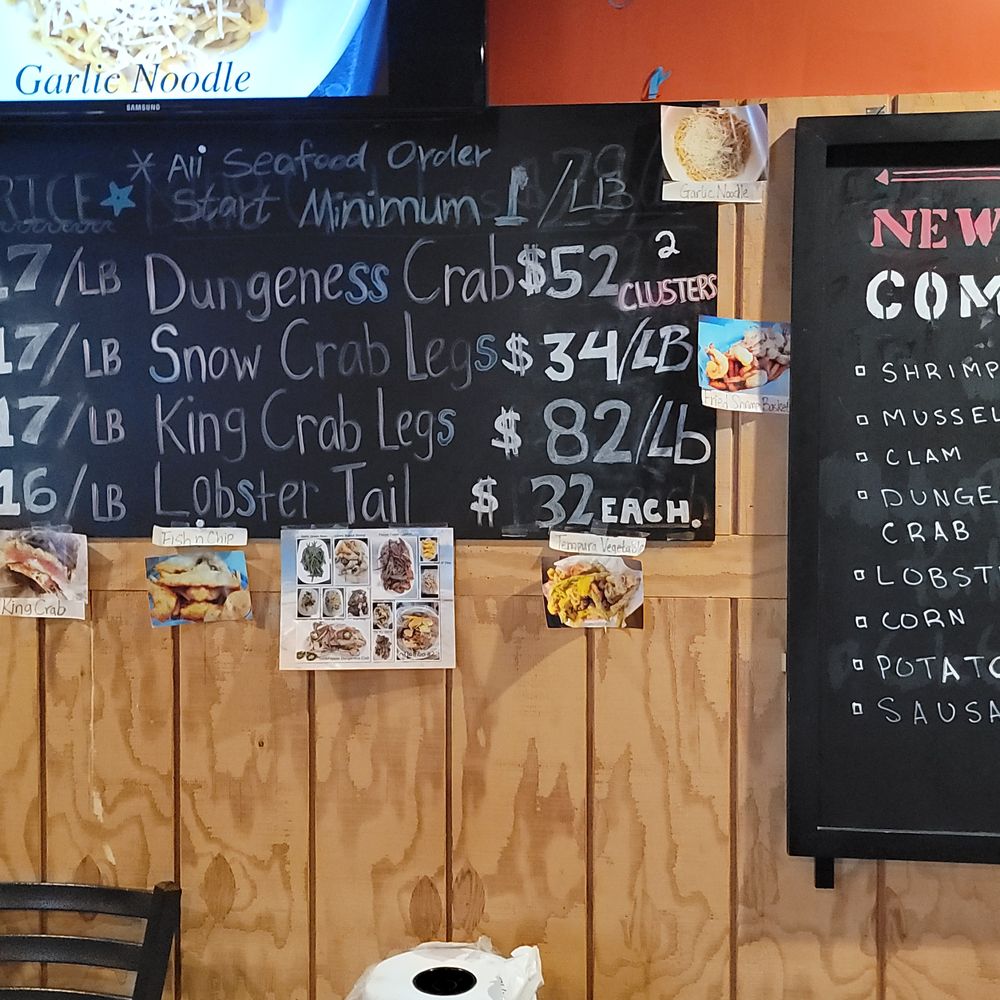 Garlic Noodle
SAMSUNG
* All Seafood Order
RICE Start Minimum 1/LB
17/LB Dungeness Crab $52 2 CLUSTERS
17/LB Snow Crab Legs $34/LB
17/LB King Crab Legs $82/Lb
16/LB Lobster Tail $32 EACH.
Garlic Noodle
Fried Shrimp Basket
King Crab
Fish n Chip
Tempura Vegetable
NEW
COM
SHRIMP
MUSSEL
CLAM
DUNGE
CRAB
LOBST
CORN
POTATO
SAUSA